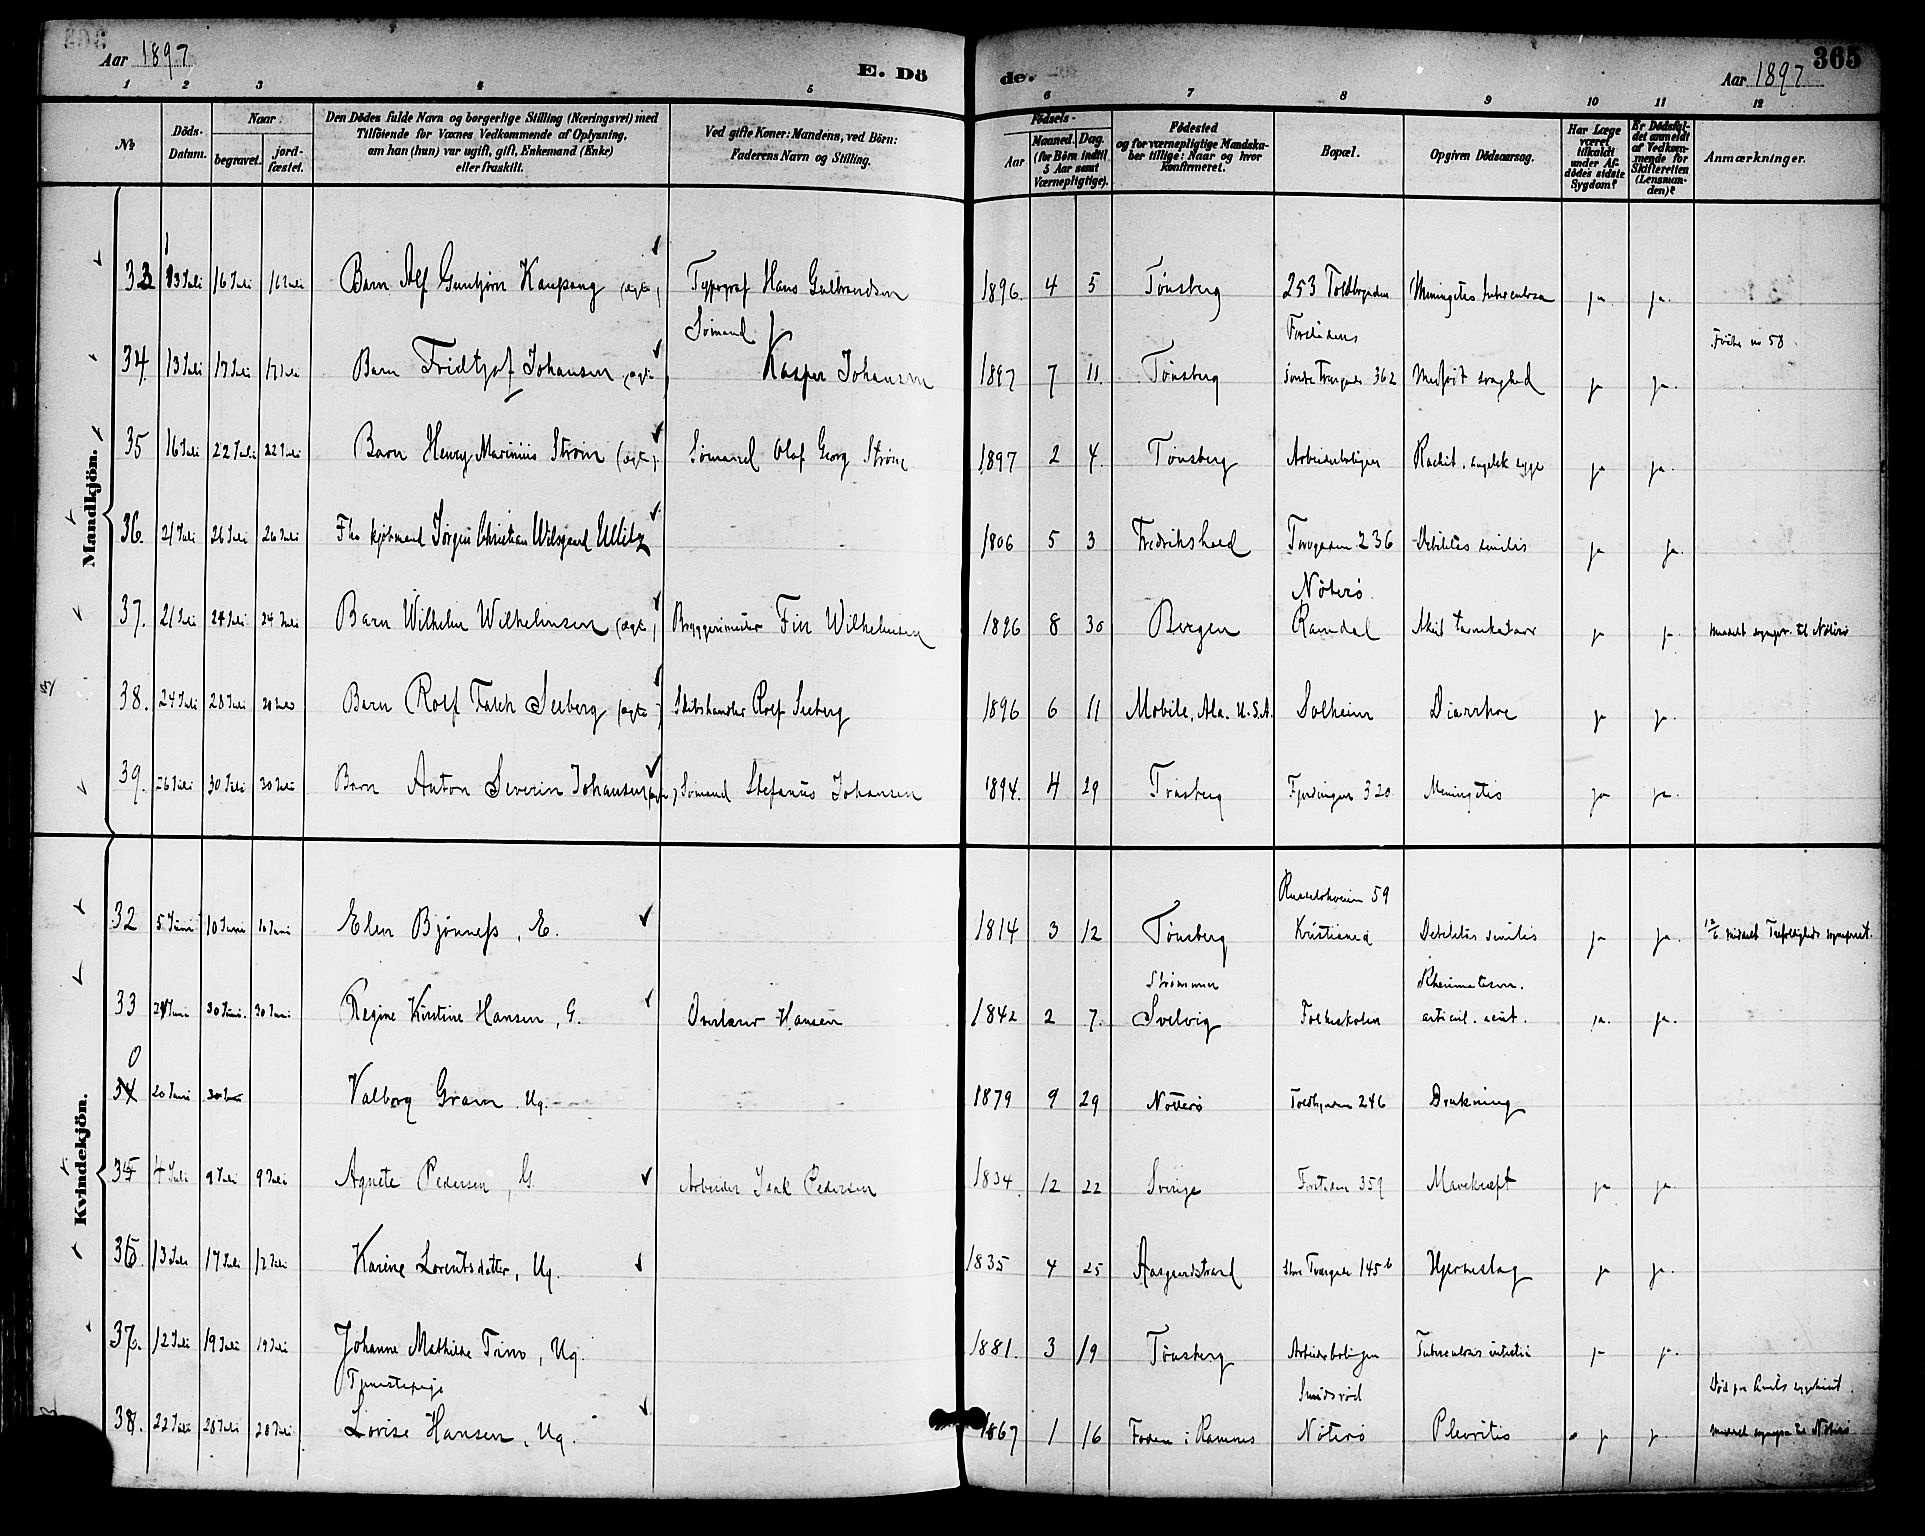 Aar 1897
E. Dö
de.
Aar 1897
365
1 2 3 4 5 6 7 8 9 10 11 12
No
Döds-Datum.
Naar
begravet.
jord-fæstet.
Den Dödes fulde Navn og borgerlige Stilling (Næringsvei) med
Tilföiende for Voxnes Vedkommende af Oplysning,
om han (hun) var ugift, gift, Enkemand (Enke)
eller fraskilt.
Ved gifte Koner: Mandens, ved Börn:
Faderens Navn og Stilling.
Födsels-
Aar
Maaned.
Dag.
(for Börn indtil
5 Aar samt
Værnepligtige).
Födested
og for værnepligtige Mandska-
ber tillige: Naar og hvor
Konfirmeret.
Bopæl.
Opgiven Dödsaarsag.
Har Læge
været
tilkaldt
under Af-
dödes sidste
Sygdom?
Er Dödsfal-
det anmeldt
af Vedkom-
mende for
Skifteretten
(Lensman-
den)?
Anmærkninger.
Mandkjön.
33 13 Juli 16 Juli 16 Juli Barn Alf Gunbjørn Kaupang (ægte) Typograf Hans Gulbrandsen 1896. 4 5 Tønsberg 253 Toldbodgaden Meningitis tuberculosa ja ja.
Sømand
Forstaden
34. 13 Juli 17 Juli 17 Juli Barn Fridtjof Johansen (ægte) Kasper Johansen 1897 7 11. Tønsberg 362 Medfødt svaghed ja ja.
35 16 Juli 22 Juli 22 Juli Barn Henry Marinius Strøm (ægte). Sømand Olaf Georg Strøm 1897 2 4. Tønsberg Arbeiderboligen Rachit. engelsk syge ja ja.
36. 21 Juli 26 Juli 26 Juli Fhv kjøbmand Jørgen Christian Wilsgaard Ullitz 1806 5 3 Fredrikshald 236 Debilitas senilis ja ja.
Nöterö
37. 21 Juli 24 Juli 24 Juli Barn Wilhelm Wilhelmsen (ægte) Bryggerimester Finn Wilhelmsen 1896 8 30 Bergen Ramdal Akut tarmkatarr ja ja meldt sognepr. til Nöterö
38. 24 Juli 28 Juli 28 Juli Barn Rolf Falch Seeberg (ægte) Skibshandler Rolf Seeberg 1896 6 11 Mobile, Ala. U.S.A. Solheim Diarrhoe ja ja.
39. 26 Juli 30 Juli 30 Juli Barn Anton Severin Johansen (ægte) Sømand Stefanus Johansen 1894. 4 29 Tønsberg Fjerdingen 320 Meningitis ja ja.
Kvindekjön.
59
32 5 Juni 10 Juni 10 Juni Elen Bjønness, E. 1814 3 12 Tønsberg Kristiania Debilitas senilis ja ja. meldt Trefoldigheds sognepræst.
Strømmen
Rheumatism.
33 24 Juni 30 Juni. 30 Juni Regine Kirstine Hansen, G. Hansen 1842 2 7. Svelvig Folkeskolen articul. acut. ja. ja.
0
34 20 Juni 30 Juni Valborg Gram Ug. 1879 9 29 Nötterö Toldbgaden 246 Drukning
34 4 Juli 9 Juli 9 Juli Agnete Pedersen, G. Arbeider Isak Pedersen 1834. 12 22 Sverige Forstaden 359 Mavekræft ja ja.
35. 13 Juli 17 Juli 17 Juli Karine Lorentsdatter, Ug. 1835 4 25 Aasgaardstrand Store Tvergade 145 b Hjerneslag ja ja.
37. 12 Juli 19 Juli 19 Juli Johanne Mathilde Trino, Ug. 1881. 3 19 Tønsberg Arbeiderboligen ja ja.
Tjenestepige
Smidsrød
38. 22 Juli 28 Juli 28 Juli Lovise Hansen, Ug. 1867 1 16 Foden i Ramnes Nöterö Pleuritis ja ja meldt sognepr. til Nöterö